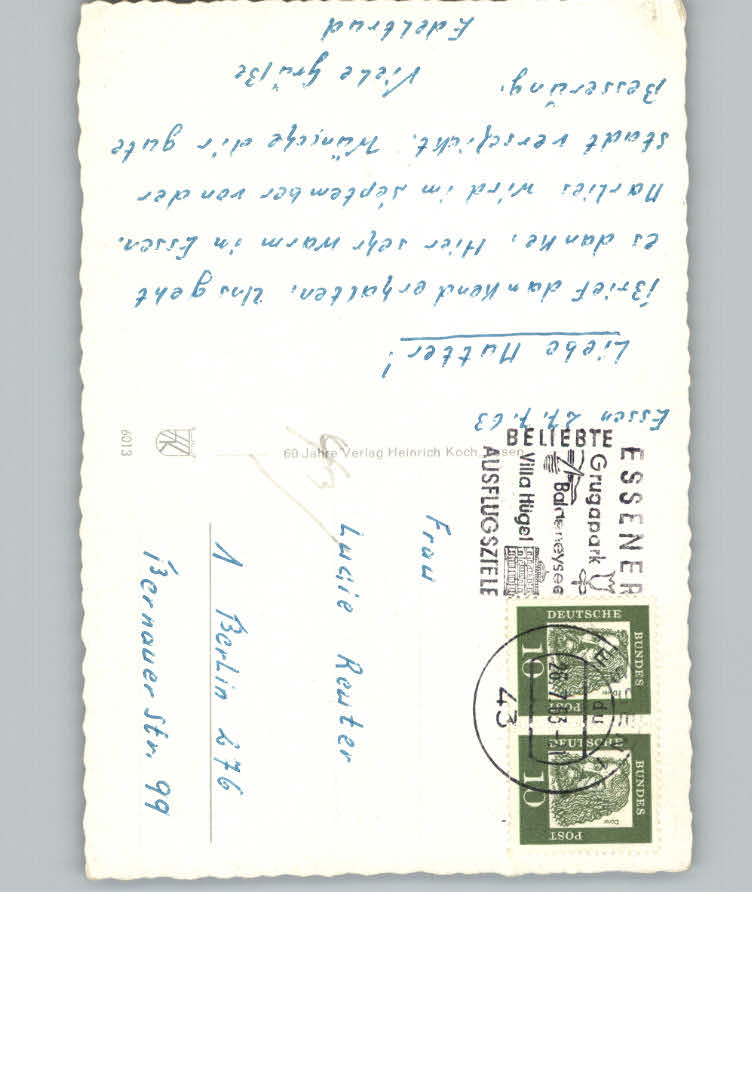 Essen 27.7.63
Liebe Mutter!
Brief dankend erhalten. Uns geht
es danke. Hier sehr warm in Essen.
Marlies wird im September von der
Stadt verschickt. Wünsche dir gute
Besserung.
Viele Grüße
Edeltrud
60 Jahre Verlag Heinrich Koch, Essen
6013
ESSENER
Grugapark
Baldeneysee
Villa Hügel
BELIEBTE
AUSFLUGSZIELE
DEUTSCHE
BUNDES
POST
10
DEUTSCHE
BUNDES
POST
10
Dürer
43
Frau
Lucie Reuter
1 Berlin 276
Bernauer Str. 99